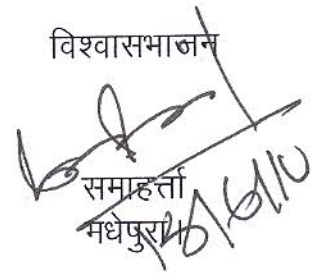 विश्वासभाजन
समाहर्त्ता
मधेपुरा।